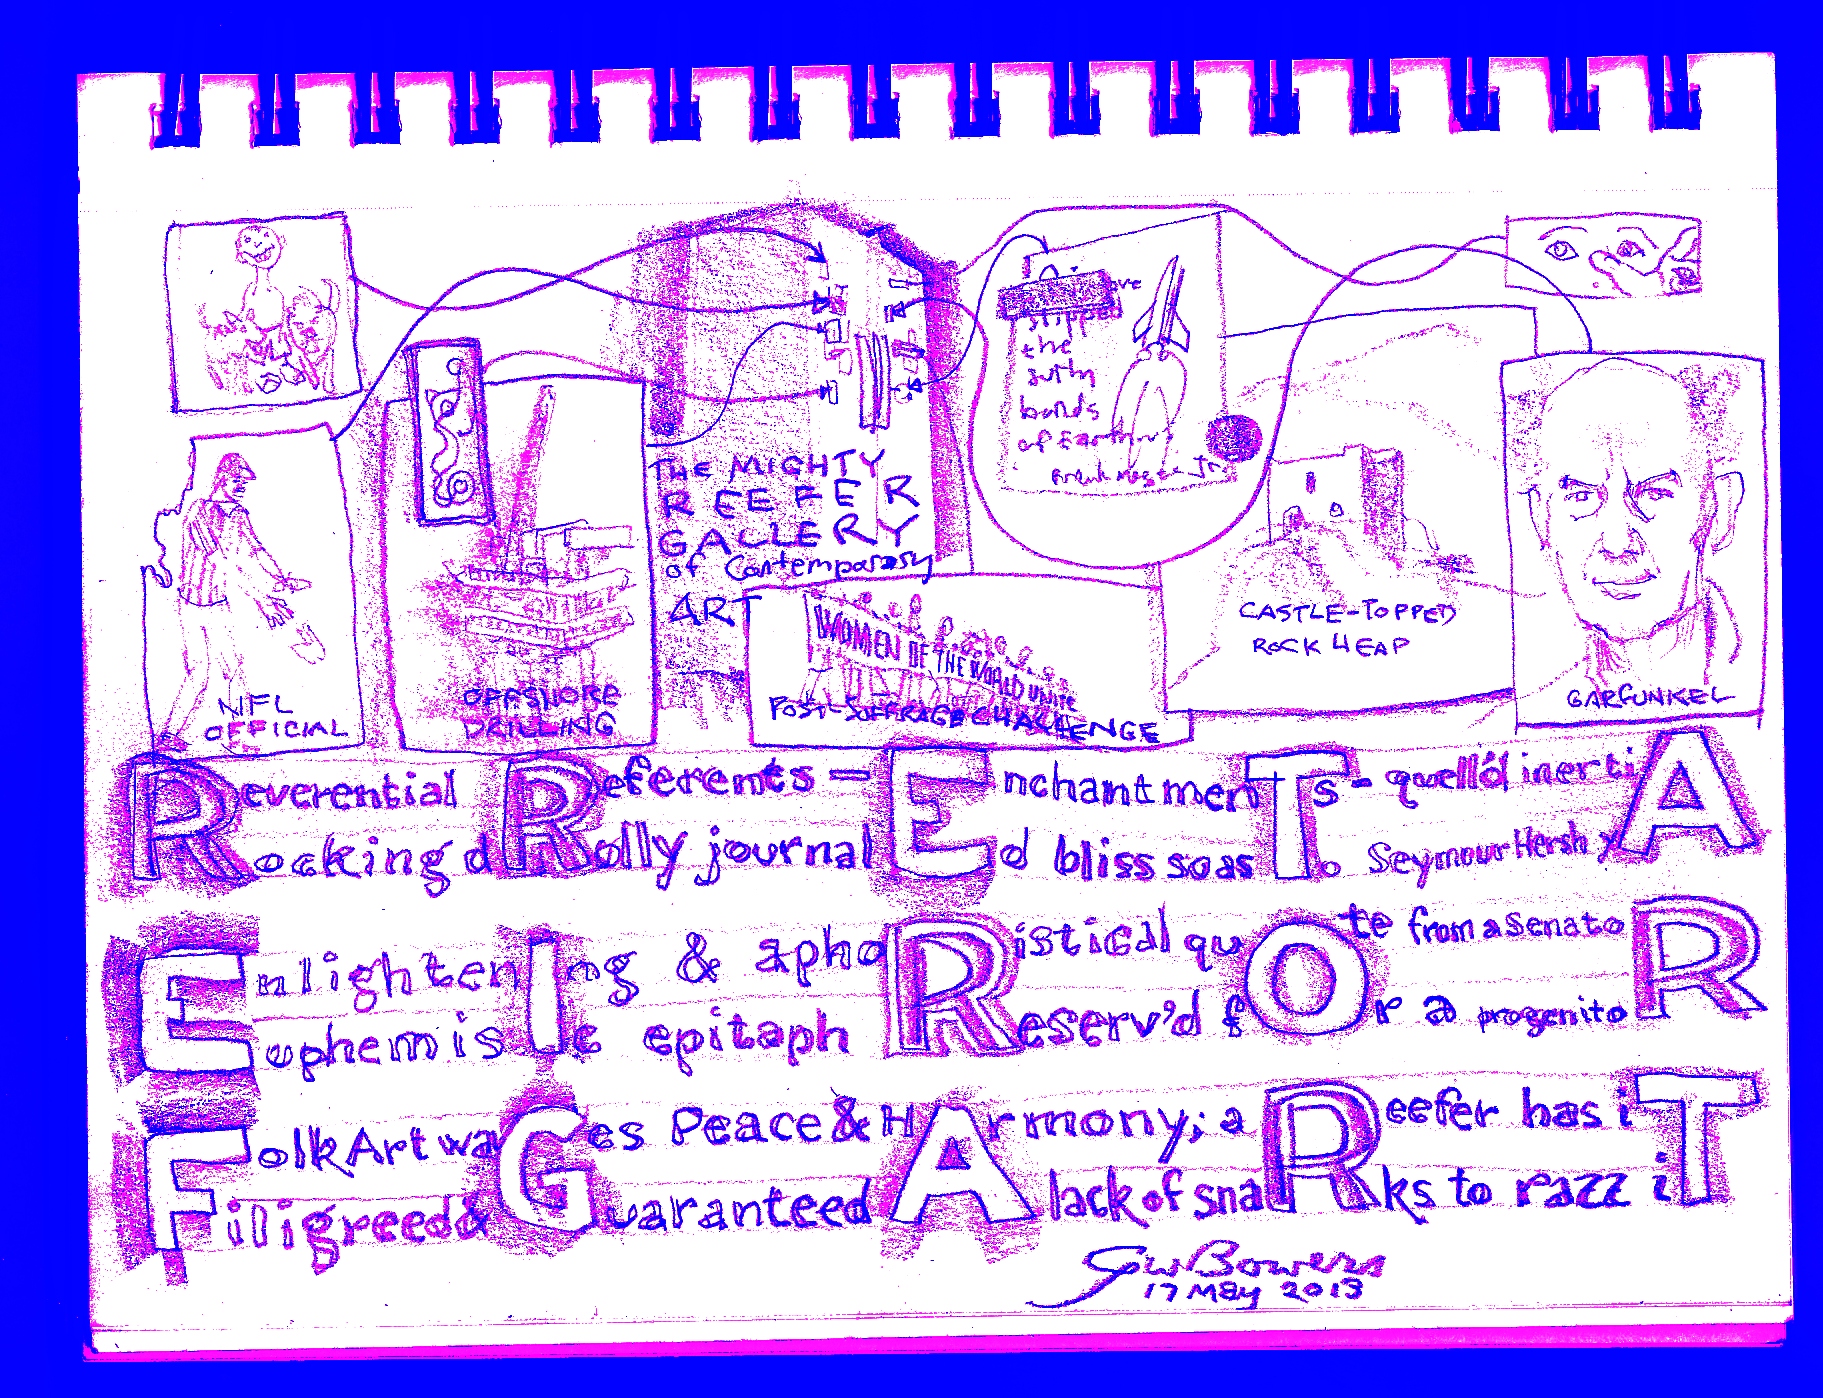 the
surly
bonds
of Earth
THE MIGHTY
REEFER
GALLERY
of Contemporary
ART
WOMEN OF THE WORLD UNITE
POST-SUFFRAGE CHALLENGE
NFL
OFFICIAL
OFFSHORE
DRILLING
CASTLE-TOPPED
ROCK HEAP
GARFUNKEL
Reverential Referents - EnchantmenTs - quell'd inertiA
Rocking dRolly journalEd bliss so as To Seymour Hersh yA
EnlightenIng & aphoRistical quOte from a senatoR
EuphemisIc epitaph Reserv'd fOr a progenitoR
Folk Art waGes Peace & HArmony; a Reefer has iT
Filigreed & Guaranteed A lack of snaRks to razz iT
GW Bowers
17 May 2013